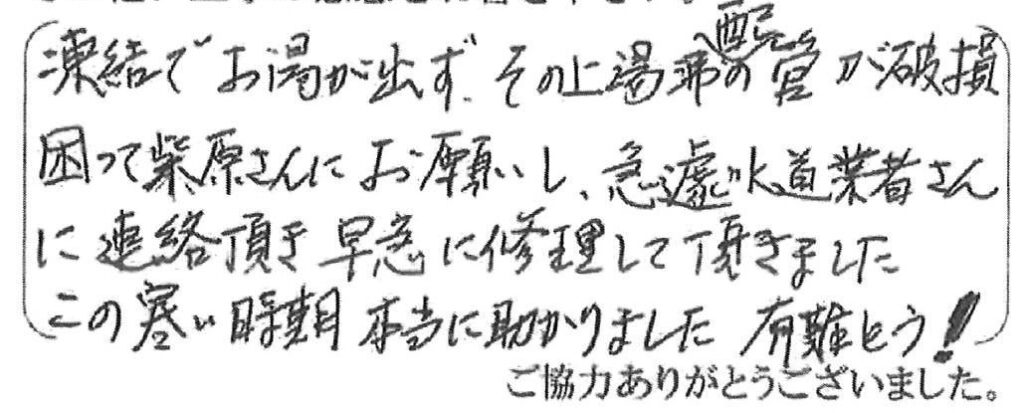 凍結でお湯が出ず、その上湯沸の配管が破損
困って柴原さんにお願いし、急遽水道業者さん
に連絡頂き早急に修理して頂きました
この寒い時期本当に助かりました 有難とう!
ご協力ありがとうございました。